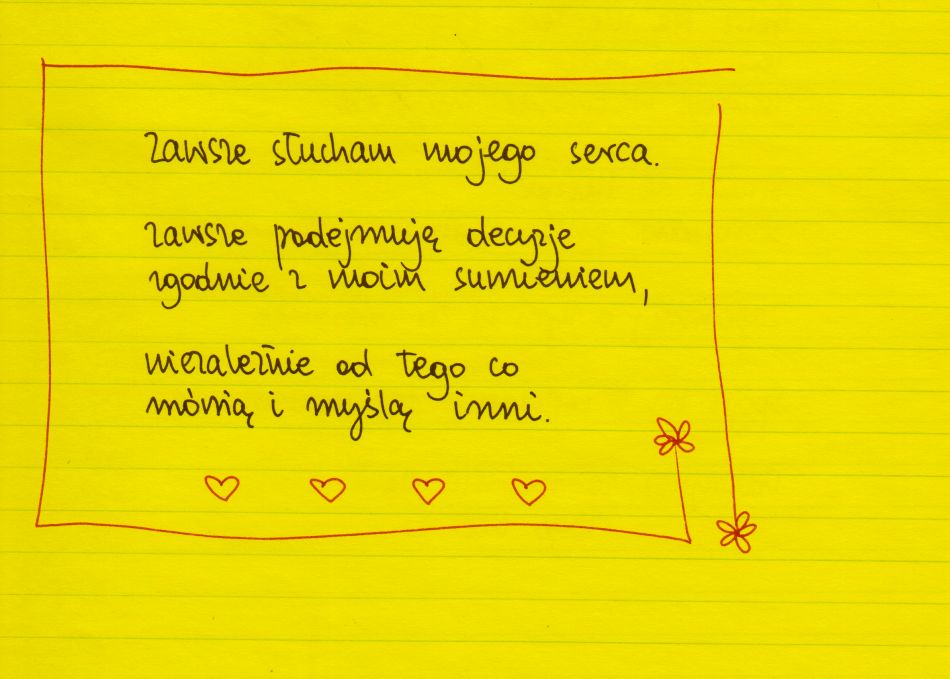 zawsze słucham mojego serca.
zawsze podejmują decyzje
zgodnie z moim sumieniem,
niezależnie od tego co
mówią i myślą inni.